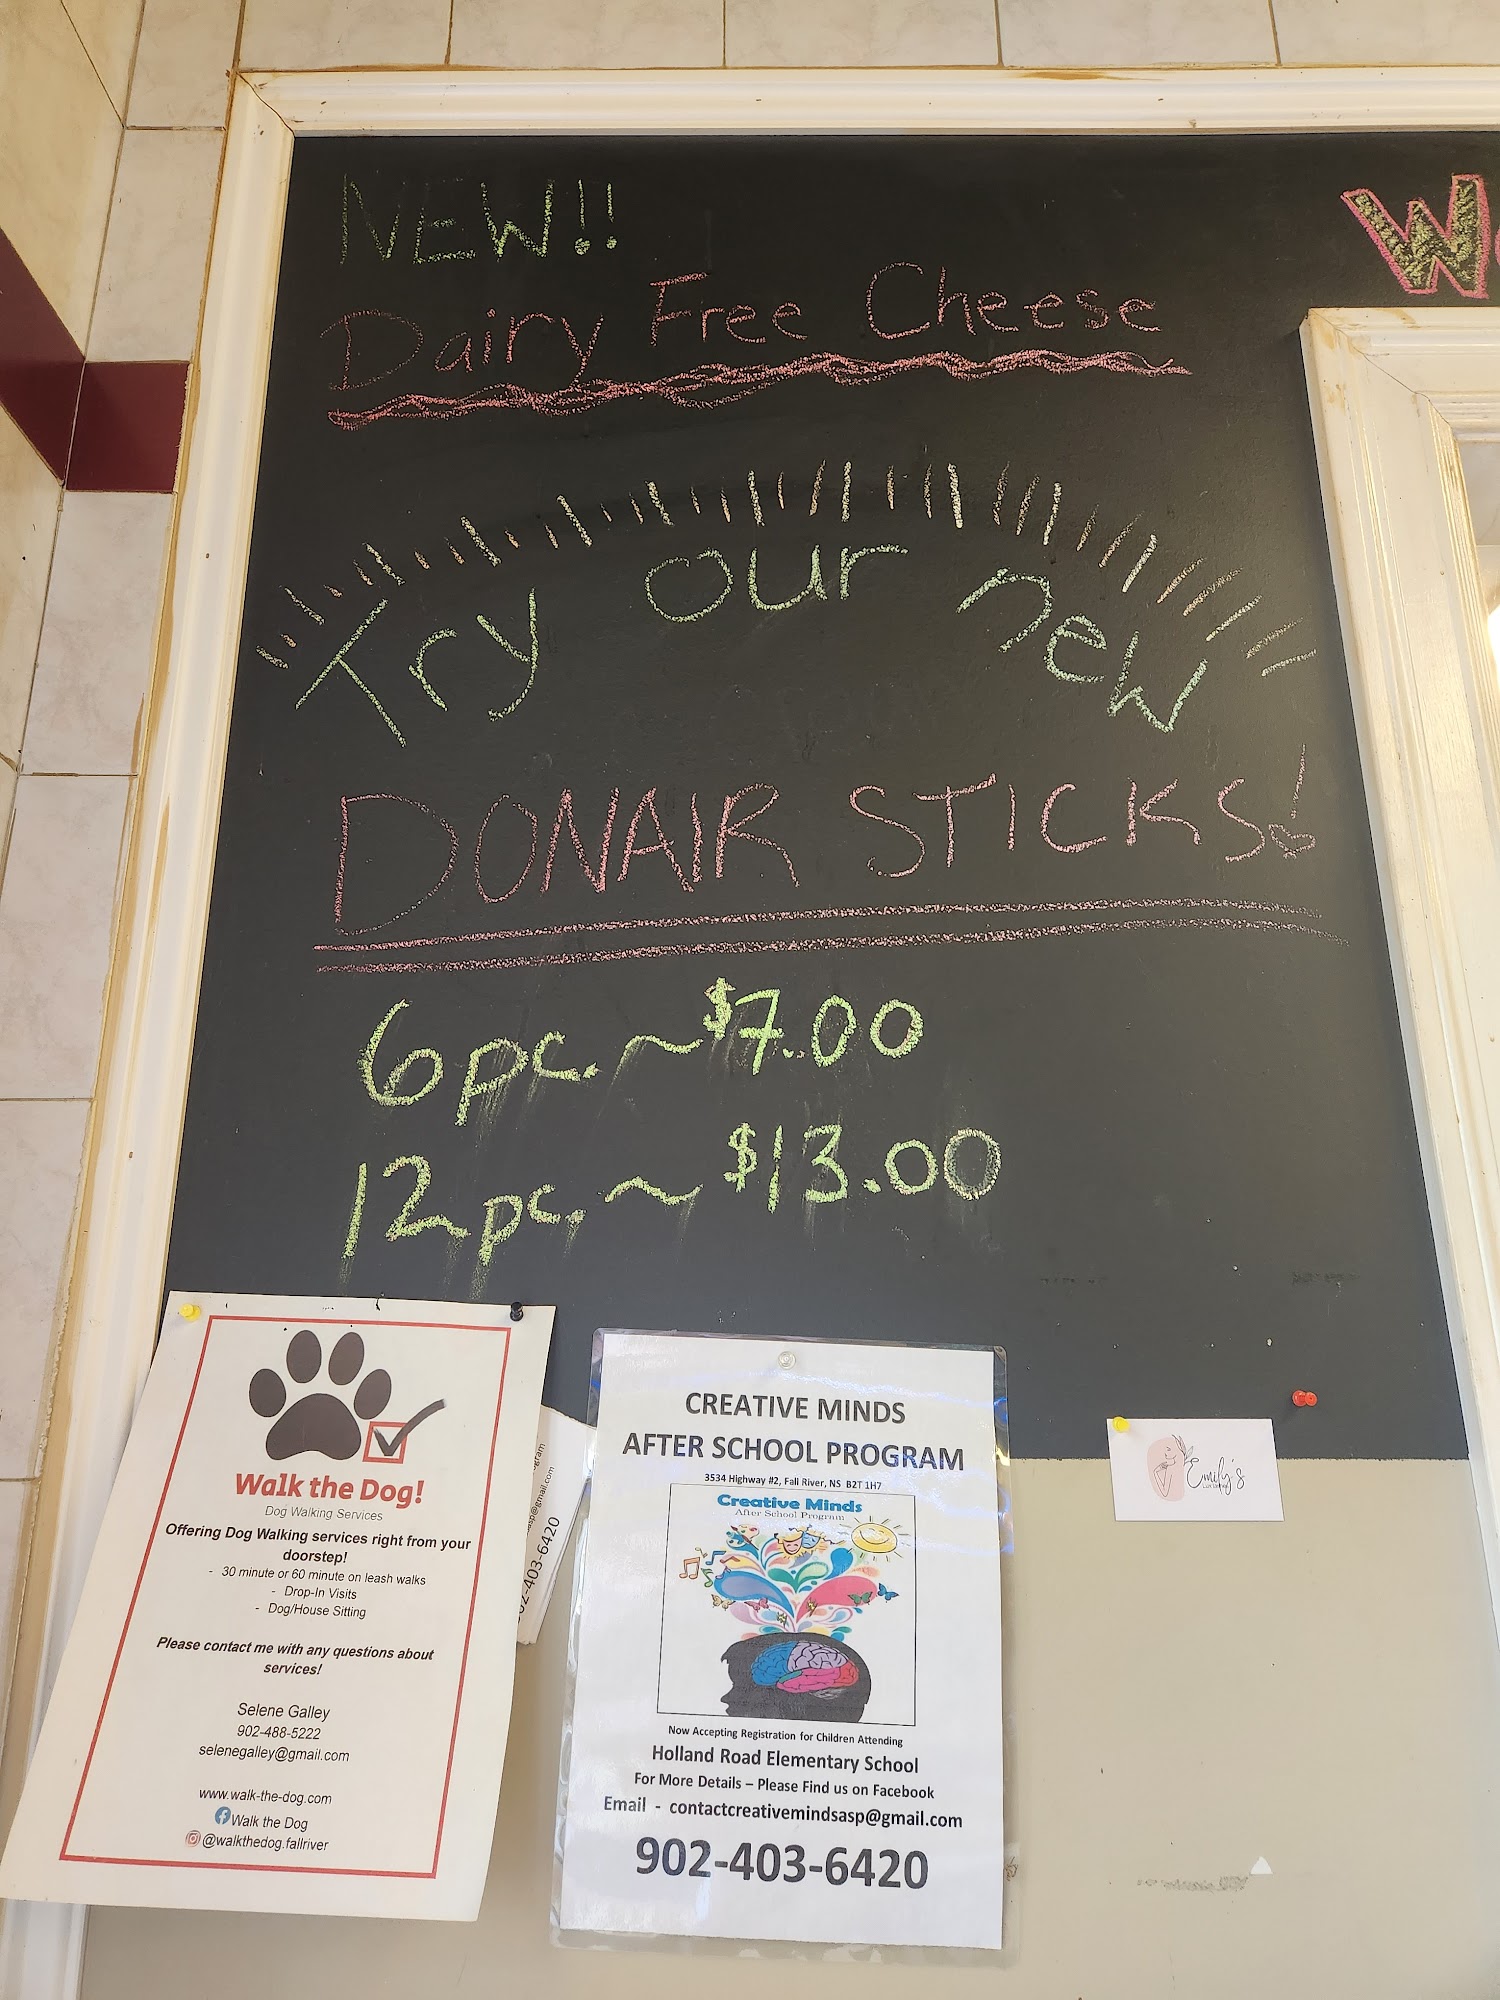 NEW!!
Dairy Free Cheese
Try our new
DONAIR STICKS!
6pc. ~ $7.00
12pc. ~ $13.00
Walk the Dog!
Dog Walking Services
Offering Dog Walking services right from your
doorstep!
- 30 minute or 60 minute on leash walks
- Drop-In Visits
- Dog/House Sitting
Please contact me with any questions about
services!
Selene Galley
902-488-5222
selenegalley@gmail.com
www.walk-the-dog.com
Walk the Dog
@walkthedog.fallriver
asp@gmail.com
02-403-6420
CREATIVE MINDS
AFTER SCHOOL PROGRAM
3534 Highway #2, Fall River, NS B2T 1H7
Creative Minds
After School Program
Now Accepting Registration for Children Attending
Holland Road Elementary School
For More Details – Please Find us on Facebook
Email - contactcreativemindsasp@gmail.com
902-403-6420
Emily's